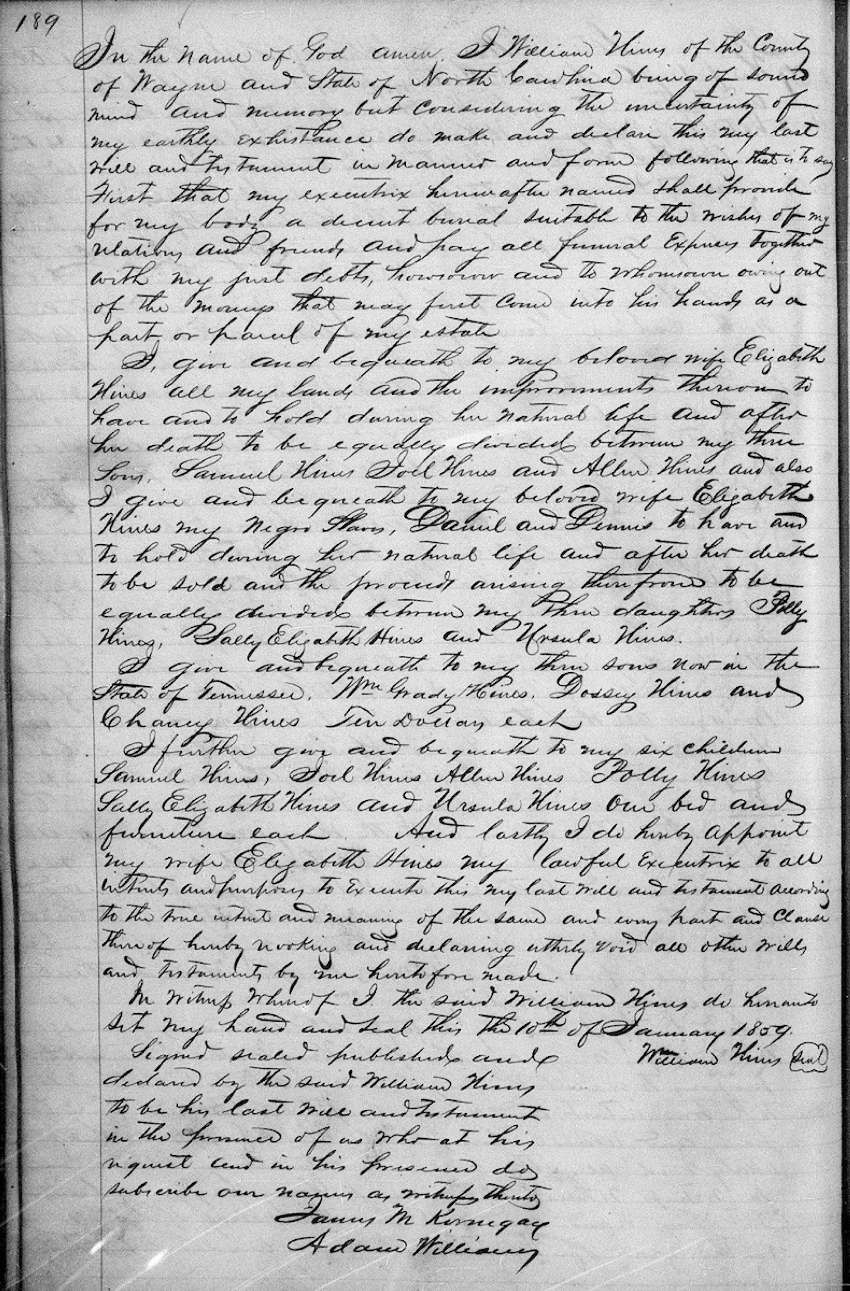 189
In the name of God amen. I William Hines of the County
of Wayne and State of North Carolina being of sound
mind and memory but considering the uncertainty of
my earthly exhistance do make and declare this my last
will and testament in manner and form following that is to say
First that my executrix hereinafter named shall provide
for my body a decent burial suitable to the wishes of my
relations and friends and pay all funeral Expenses together
with my just debts, howsoever and to whomsoever owing out
of the moneys that may first come into his hands as a
part or parcel of my estate
I, give and bequeath to my beloved wife Elizabeth
Hines all my lands and the improvments thereon to
have and to hold during her natural life and after
her death to be equally divided between my three
sons, Samuel Hines Joel Hines and Allen Hines and also
I give and bequeath to my beloved wife Elizabeth
Hines my Negro Slaves, Daniel and Dennis to have and
to hold during her natural life and after her death
to be sold and the proceeds arising therefrom to be
equally divided between my three daughters Polly
Hines, Sally Elizabeth Hines and Ursula Hines.
I give and bequeath to my three sons now in the
State of Tennessee, Wm Grady Hines, Dossey Hines and
Chancy Hines Ten Dollars each
I further give and bequeath to my six children
Samuel Hines, Joel Hines Allen Hines Polly Hines
Sally Elizabeth Hines and Ursula Hines one bed and
furniture each. And lastly I do hereby appoint
my wife Elizabeth Hines my lawful Executrix to all
intents and purposes to Execute this my last will and testament according
to the true intent and meaning of the same and every part and clause
thereof hereby revoking and declaring utterly void all other wills
and testaments by me heretofore made.
In witness whereof I the said William Hines do hereunto
set my hand and seal this the 10th of January 1859.
Signed sealed published and William Hines seal
declared by the said William Hines
to be his last will and testament
in the presence of us who at his
request and in his presence do
subscribe our names as witnesses thereto
James M Kornegay
Adam Williams